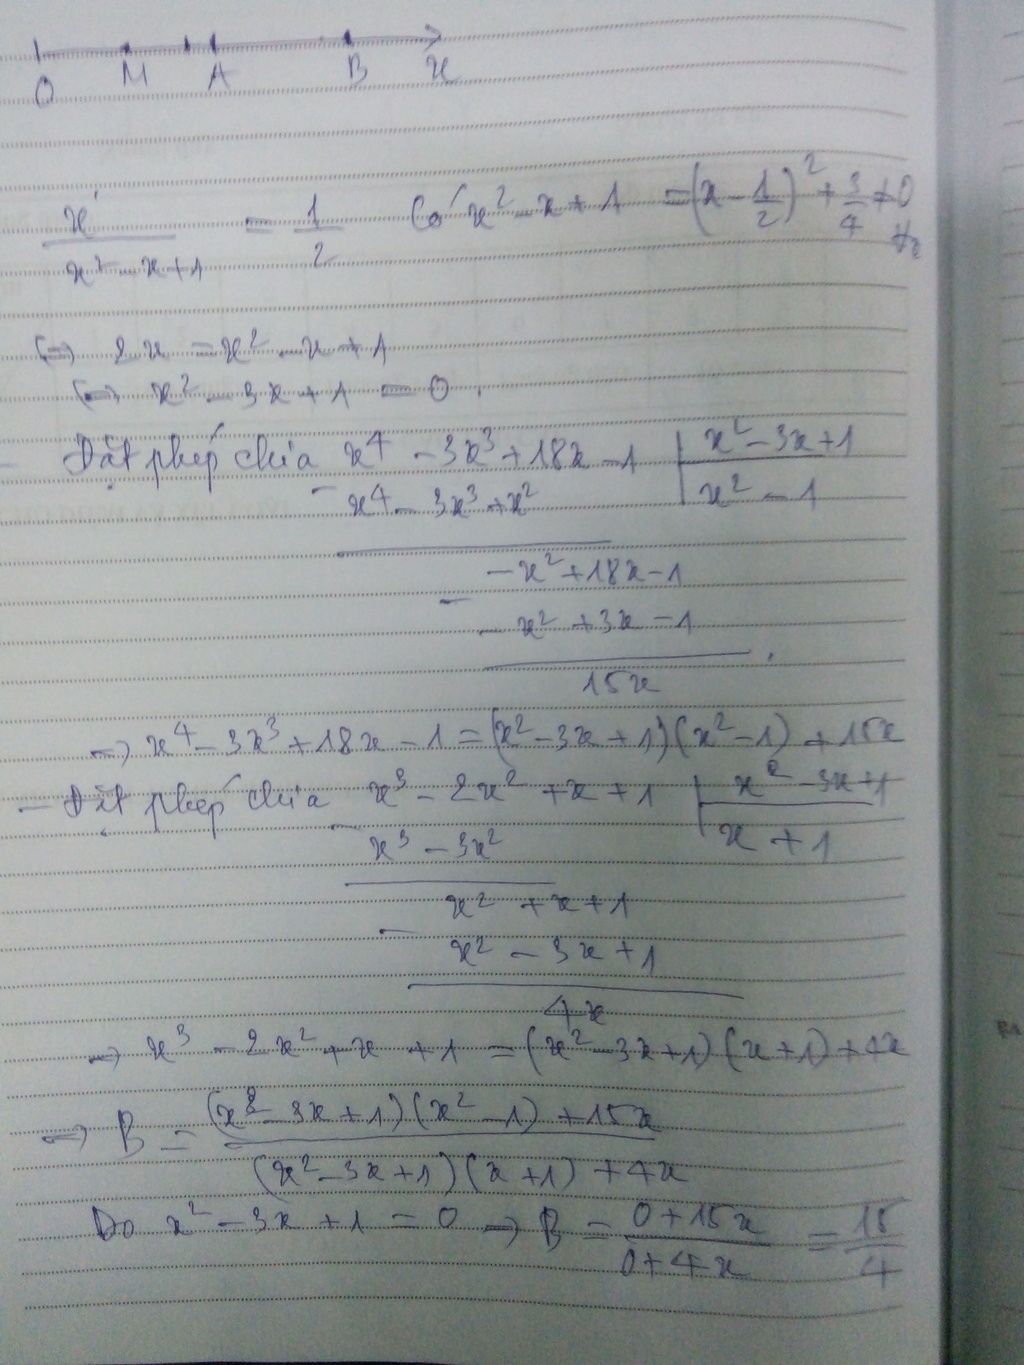 O M A B x
x / (x² - x + 1) = 1/2 Có x² - x + 1 = (x - 1/2)² + 3/4 ≠ 0 ∀x
⇔ 2x = x² - x + 1
⇔ x² - 3x + 1 = 0.
- Đặt phép chia x⁴ - 3x³ + 18x - 1 | x² - 3x + 1
- x⁴ - 3x³ + x² | x² - 1
- x² + 18x - 1
-
- x² + 3x - 1
15x
→ x⁴ - 3x³ + 18x - 1 = (x² - 3x + 1)(x² - 1) + 15x
- Đặt phép chia x³ - 2x² + x + 1 | x² - 3x + 1
- x³ - 3x² | x + 1
x² + x + 1
-
x² - 3x + 1
4x
→ x³ - 2x² + x + 1 = (x² - 3x + 1)(x + 1) + 4x
→ B = ((x² - 3x + 1)(x² - 1) + 15x) / ((x² - 3x + 1)(x + 1) + 4x)
Do x² - 3x + 1 = 0 → B = (0 + 15x) / (0 + 4x) = 15/4